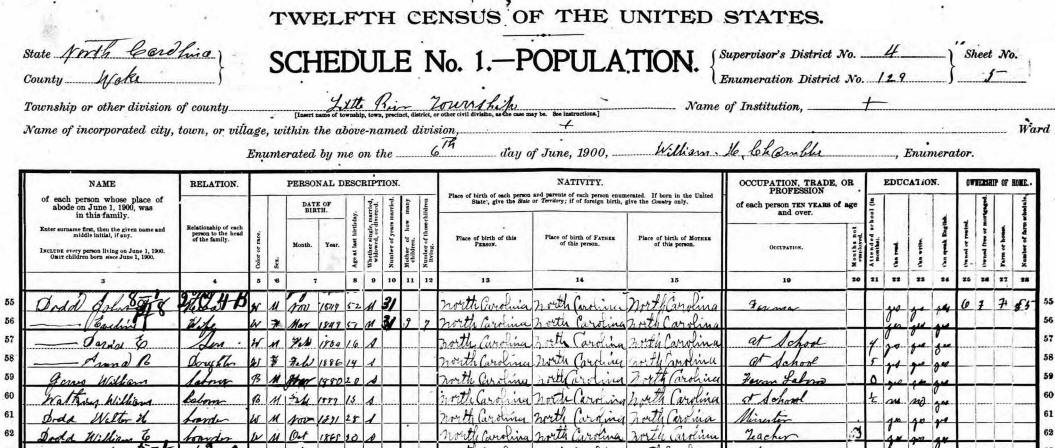 TWELFTH CENSUS OF THE UNITED STATES.
State North Carolina
County Wake
SCHEDULE No. 1.—POPULATION.
Supervisor's District No. 4
Enumeration District No. 129
Sheet No.
5
Township or other division of county Little River Township
[Insert name of township, town, precinct, district, or other civil division, as the case may be. See instructions.]
Name of Institution, +
Name of incorporated city, town, or village, within the above-named division, +
Ward
Enumerated by me on the 6th day of June, 1900, William H. , Enumerator.
NAME
of each person whose place of abode on June 1, 1900, was in this family.
Enter surname first, then the given name and middle initial, if any.
INCLUDE every person living on June 1, 1900.
OMIT children born since June 1, 1900.
RELATION.
Relationship of each person to the head of the family.
PERSONAL DESCRIPTION.
Color or race.
Sex.
DATE OF BIRTH.
Month. Year.
Age at last birthday.
Whether single, married, widowed, or divorced.
Number of years married.
Mother of how many children.
Number of these children living.
NATIVITY.
Place of birth of each person and parents of each person enumerated. If born in the United States, give the State or Territory; if of foreign birth, give the Country only.
Place of birth of this PERSON.
Place of birth of FATHER of this person.
Place of birth of MOTHER of this person.
OCCUPATION, TRADE, OR PROFESSION
of each person TEN YEARS of age and over.
OCCUPATION.
Months not employed.
EDUCATION.
Attended school (in months).
Can read.
Can write.
Can speak English.
OWNERSHIP OF HOME.
Owned or rented.
Owned free or mortgaged.
Farm or house.
Number of farm schedule.
3 4 5 6 7 8 9 10 11 12 13 14 15 19 20 21 22 23 24 25 26 27 28
55 Dodd John W M Nov 52 M 31 North Carolina North Carolina North Carolina Farmer yes yes yes O F F 55
56 Wife W F Mar 1849 51 M 31 9 7 North Carolina North Carolina North Carolina yes yes yes 56
57 Son W M Feb 16 S North Carolina North Carolina North Carolina at School 4 yes yes yes 57
58 Anna B Daughter W F Feb 1886 14 S North Carolina North Carolina North Carolina at School 5 yes yes yes 58
59 William B M 1880 20 S North Carolina North Carolina North Carolina Farm Labor 0 yes yes yes 59
60 William B M S North Carolina North Carolina North Carolina at School no no yes 60
61 Dodd Walter H boarder W M Nov 1871 28 S North Carolina North Carolina North Carolina Minister yes yes yes 61
62 Dodd William E boarder W M Oct S North Carolina North Carolina North Carolina Teacher yes yes yes 62